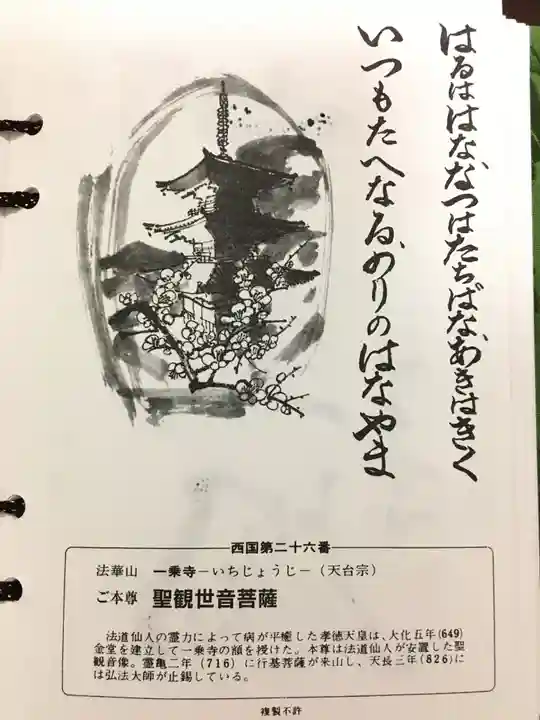 はるははな、なつはたちばな、あきはきく
いつもたへなる、のりのはなやま
西国第二十六番
法華山 一乗寺－いちじょうじ－（天台宗）
ご本尊 聖観世音菩薩
法道仙人の霊力によって病が平癒した孝徳天皇は、大化五年(649)
金堂を建立して一乗寺の額を授けた。本尊は法道仙人が安置した聖
観音像。霊亀二年（716）に行基菩薩が来山し、天長三年(826)に
は弘法大師が止錫している。
複製不許